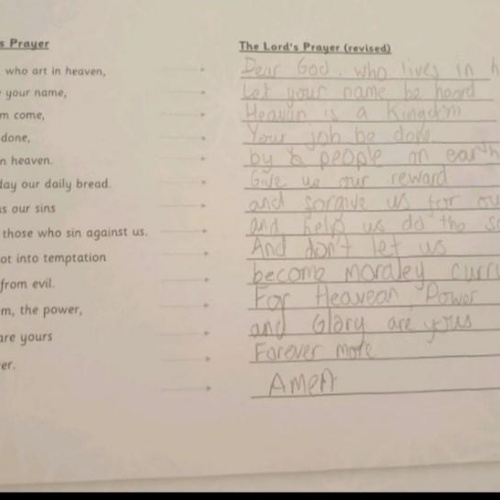 s Prayer
who art in heaven,
your name,
m come,
done,
n heaven.
day our daily bread.
s our sins
those who sin against us.
ot into temptation
from evil.
m, the power,
are yours
er.
The Lord's Prayer (revised)
Dear God, who lives in h
Let your name be heard
Heaven is a Kingdm
Your job be done
by & people on earth
Give us our reward
and forgive us for ou
and help us do the sa
And don't let us
become moraley curru
For Heaveon, Power
and Glory are yours
Forever more
Amen